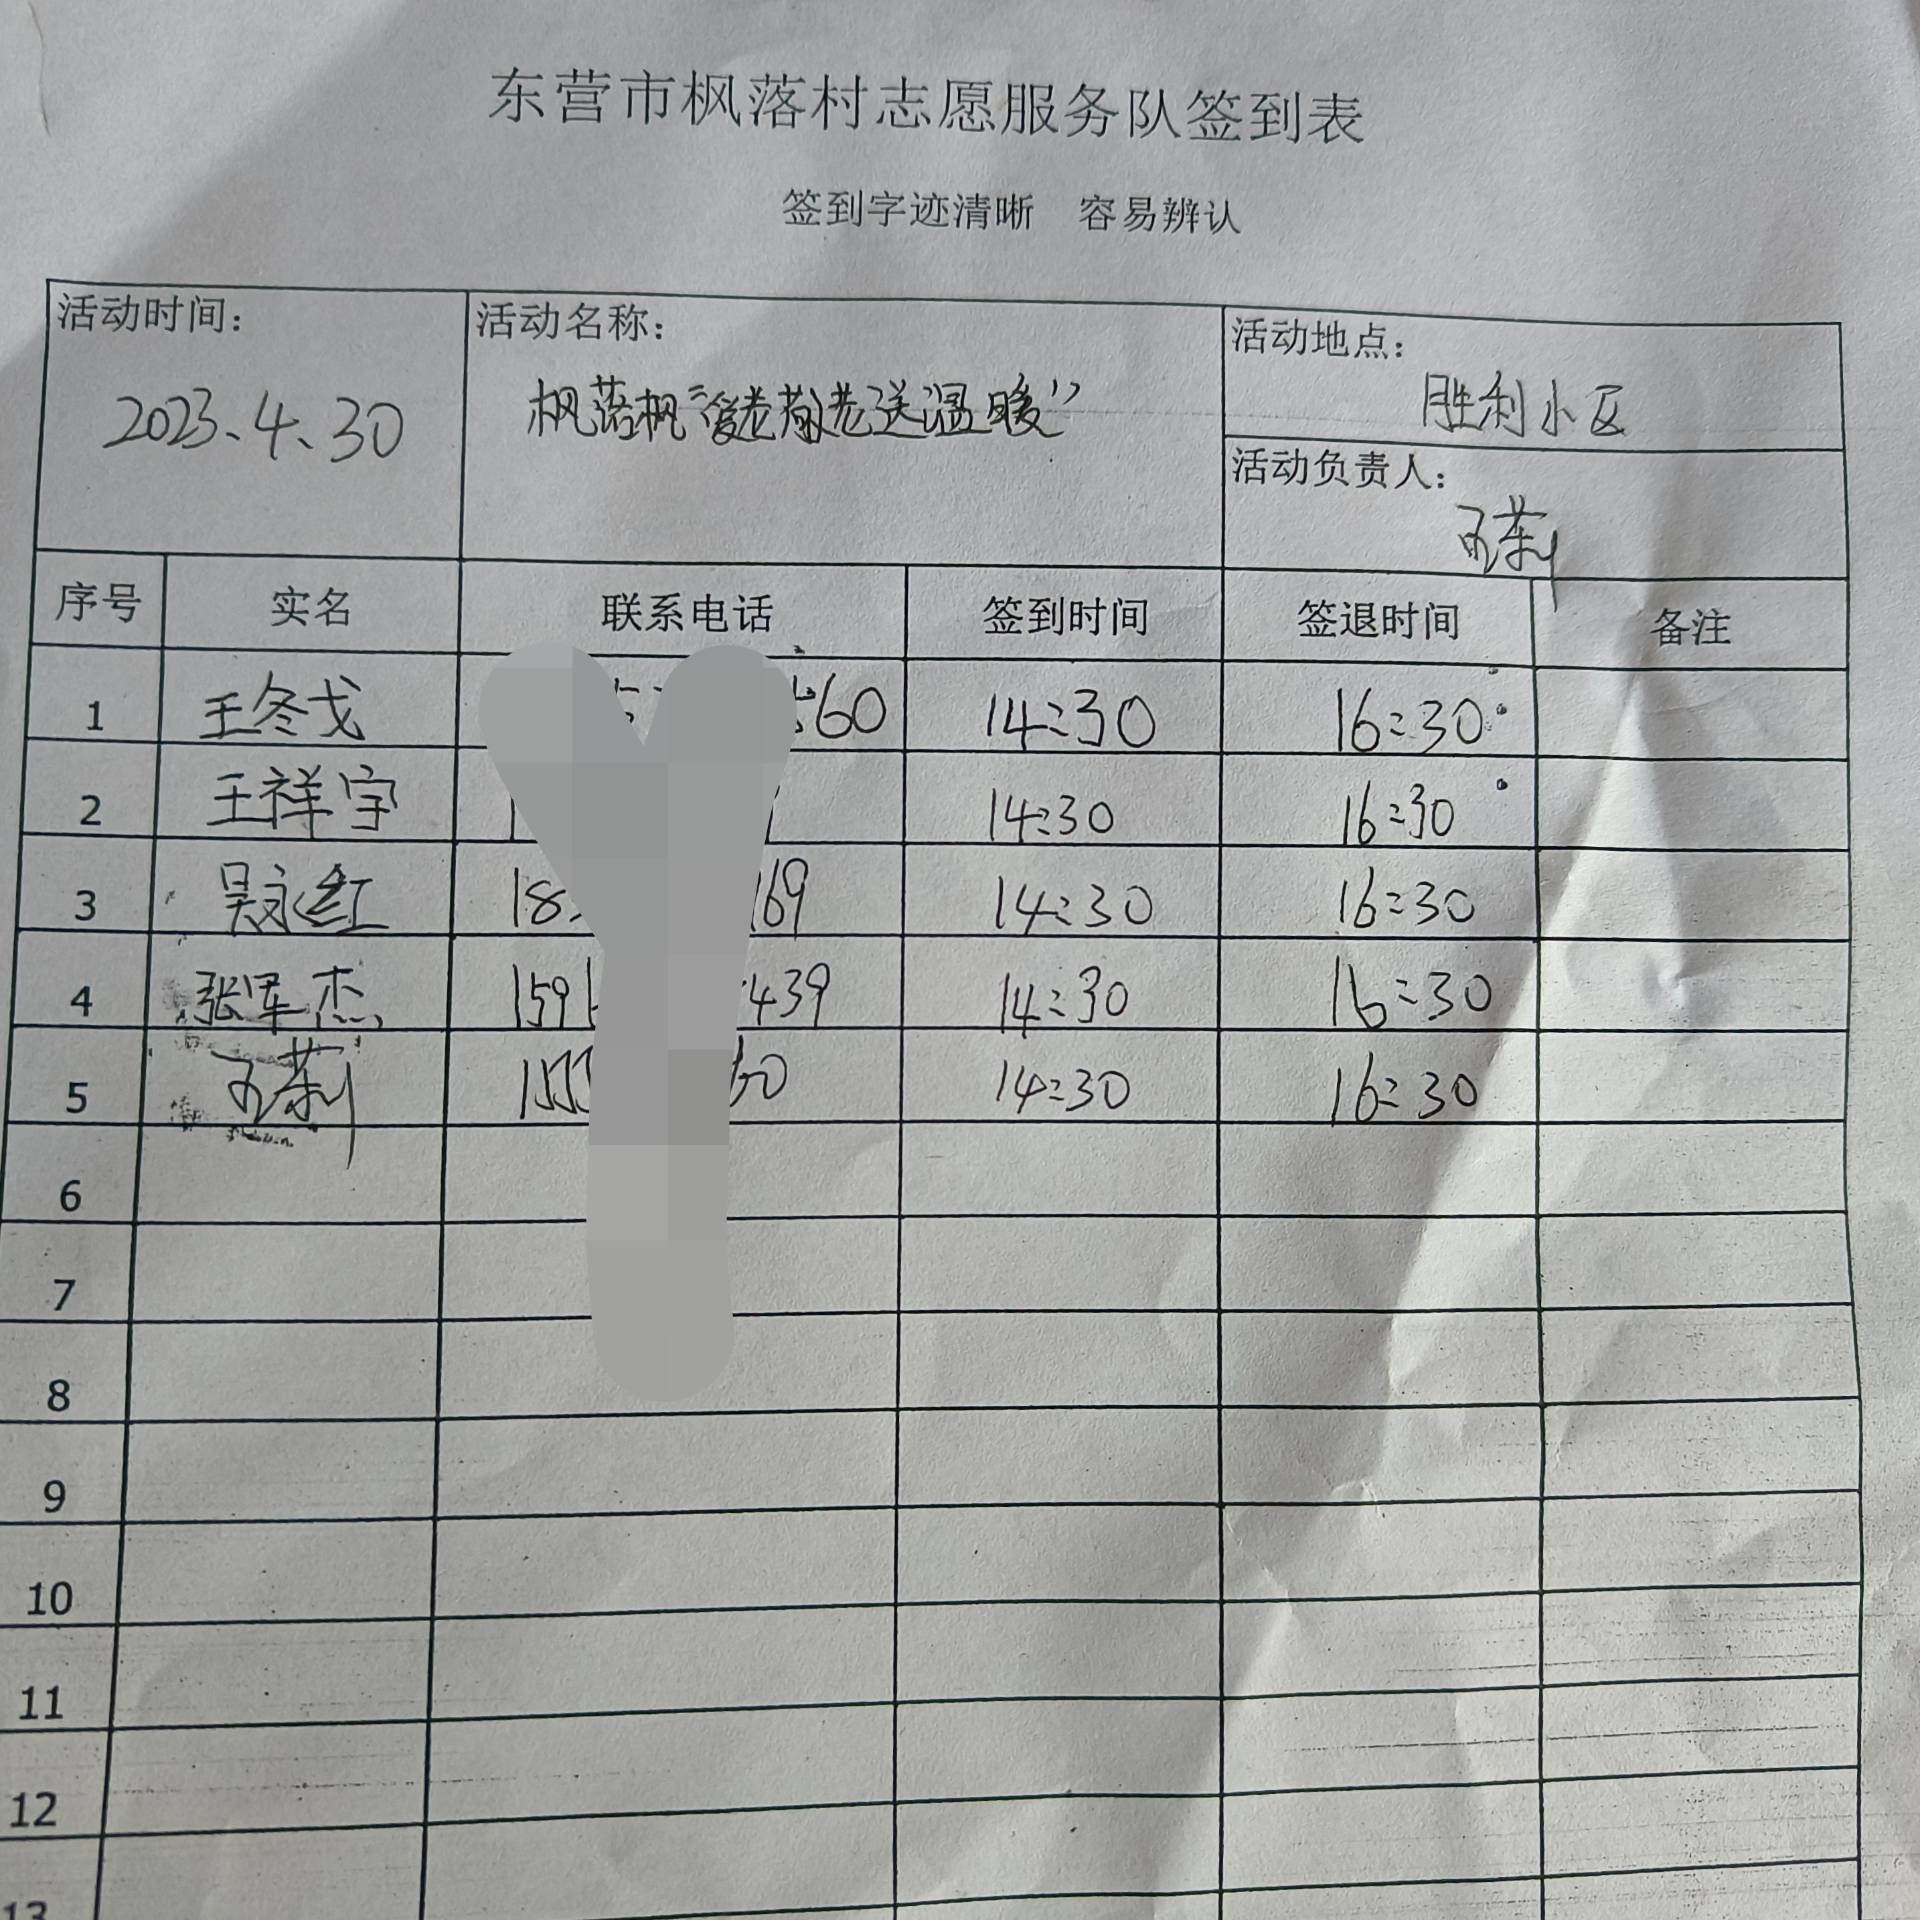 东营市枫落村志愿服务队签到表
签到字迹清晰 容易辨认
活动时间：
2023、4、30
活动名称：
枫落枫“爱老敬老送温暖”
活动地点：
胜利小区
活动负责人：
序号 实名 联系电话 签到时间 签退时间 备注
1 王冬戈 60 14:30 16:30
2 王祥宇 14:30 16:30
3 吴永红 18 169 14:30 16:30
4 张军杰 159 439 14:30 16:30
5 155 60 14:30 16:30
6
7
8
9
10
11
12
13